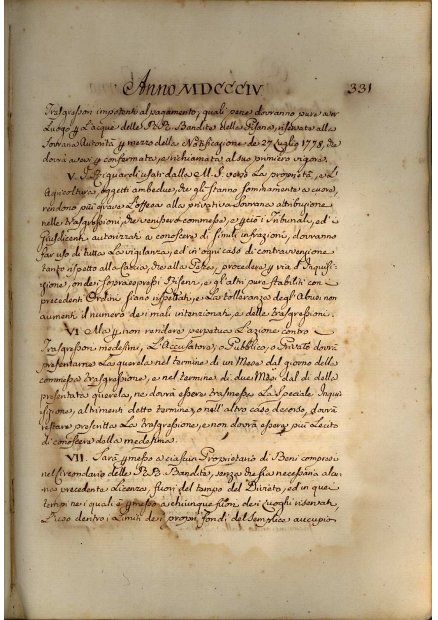 Anno MDCCCIV 331
Trasgressori impotenti al pagamento, quali pene dovranno pure aver
Luogo p L'acque delle RR. Bandite della Pisana, riservate alla
Sovrana Autorità p mezzo della Notificazione de 27 Luglio 1778, che
dovrà aversi p confermata, e richiamata al suo primiero vigore.
V. I Riguardi usati dalla M. S. verso la proprietà, e L'
Agricoltura, oggetti ambedue, che gli stanno sommamente a cuore,
rendono più grave L'offesa alla privativa Sovrana attribuzione
nelle trasgressioni, che venissero commesse, e p ciò i Tribunali, ed i
Giusdicenti autorizzati a conoscere di simili infrazioni, dovranno
far uso di tutta La vigilanza, ed in ogni caso di contravvenzione
tanto rispetto alla Caccia, che alla Pesca, procedere p via d'Inquisi-
zione, onde i sopraespressi Sistemi, e gli altri pure stabiliti con
precedenti Ordini siano rispettati, e La tolleranza degl'Abusi non
aumenti il numero dei mali intenzionati, e delle trasgressioni.
VI. Ma p non rendere perpetua L'azione contro i
Trasgressori medesimi, L'Accusatore, o Pubblico, o Privato dovrà
presentarne La querela nel termine di un Mese dal giorno della
commessa trasgressione, e nel termine di due Mesi dal dì della
presentata querela, ne dovrà essere trasmessa La Speciale Inqui-
sizione, altrimenti detto termine, o nell'altro caso decorso, dovrà
restare prescritta La trasgressione, e non dovrà essere più Lecito
di conoscere della medesima.
VII. Sarà p messo a ciascun Proprietario di Beni compresi
nel Circondario delle RR. Bandite, senza che sia necessaria alcu-
na precedente Licenza, fuori del tempo del Divieto, ed in quei
tempi nei quali è p messo a chiunque fuori dei Luoghi riservati,
L'uso dentro i Limiti dei propri fondi del semplice aucupio